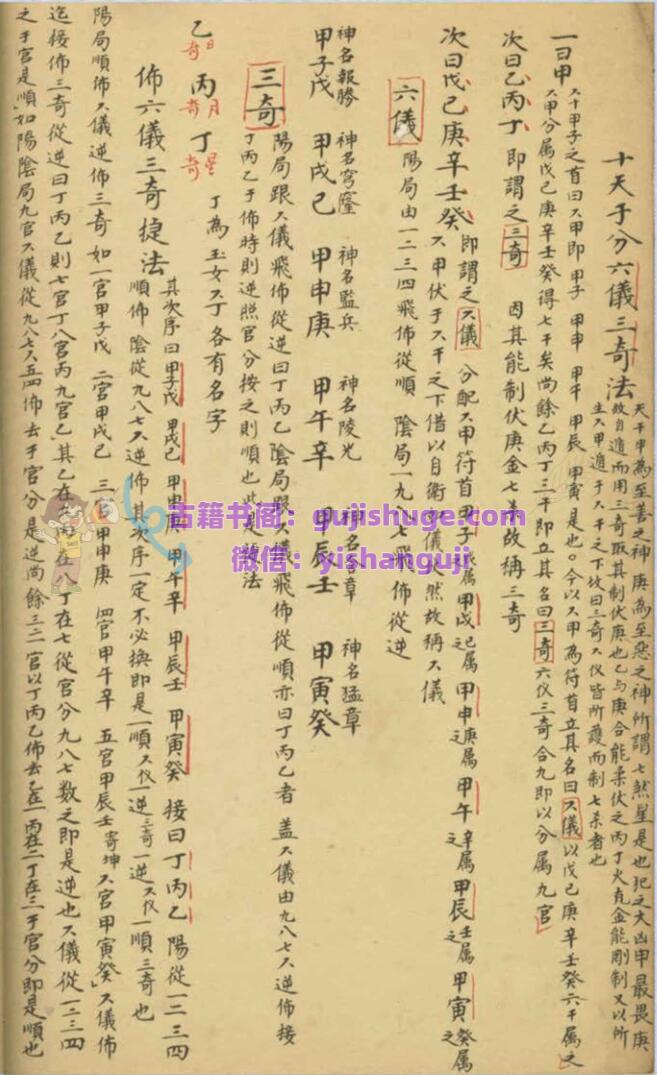 十天干分六儀三奇法
天干甲為至善之神庚為至惡之神所謂七煞星是也犯之大凶甲最畏庚
故自遁而用三奇取其制伏庚也乙与庚合能柔伏之丙丁火克金能剛制又以所
生六甲遁于六干之下故曰三奇六仪皆所護而制七杀者也
一曰甲
六十甲子之首曰六甲即甲子 甲申 甲午 甲辰 甲寅是也。今以六甲為符首立其名曰六儀以戊己庚辛壬癸六干属之
六甲分属戊己庚辛壬癸得七干矣尚餘乙丙丁三干即立其名曰三奇六仪三奇合九即以分属九宮
次曰乙丙丁 即謂之三奇 因其能制伏庚金七杀故稱三奇
次曰戊己庚辛壬癸
即謂之六儀 分配六甲符首甲子戊属之甲戌己属之甲申庚属之甲午辛属之甲辰壬属之甲寅癸属之
六甲伏于六干之下借以自衛 儀 然故稱六儀
六儀 陽局由一二三四飛佈從順 陰局一九八七飛佈從逆
神名報勝 神名穹窿 神名監兵 神名陵光 神名 章 神名猛章
甲子戊 甲戌己 甲申庚 甲午辛 甲辰壬 甲寅癸
三奇
陽局跟六儀飛佈從逆曰丁丙乙 陰局跟六儀飛佈從順亦曰丁丙乙者 蓋六儀由九八七六逆佈接
丁丙乙于佈時則逆照宮分按之則順也此是 法
乙日奇 丙月奇 丁星奇 丁為玉女六丁各有名字
佈六儀三奇捷法
其次序曰甲子戊 甲戌己 甲申庚 甲午辛 甲辰壬 甲寅癸 接曰丁丙乙 陽從一二三四
順佈 陰從九八七六逆佈其次序一定不必換即是一順六仪一逆三奇一逆六仪一順三奇也
陽局順佈六儀逆佈三奇 如一宮甲子戊 二宮甲戌己 三宮甲申庚 四宮甲午辛 五宮甲辰壬寄坤 六宮甲寅癸 六儀佈
迄接佈三奇從逆曰丁丙乙則七宮丁八宮丙九宮乙其乙在九丙在八丁在七從宮分九八七数之即是逆也六儀從一二三四
之于宮是順如陽陰局九宮六儀從九八七六五四佈去于宮分是逆尚餘三二一宮以丁丙乙佈去乙在一丙在二丁在三于宮分即是順也
古籍书阁：gujishuge.com
微信：yishanguji